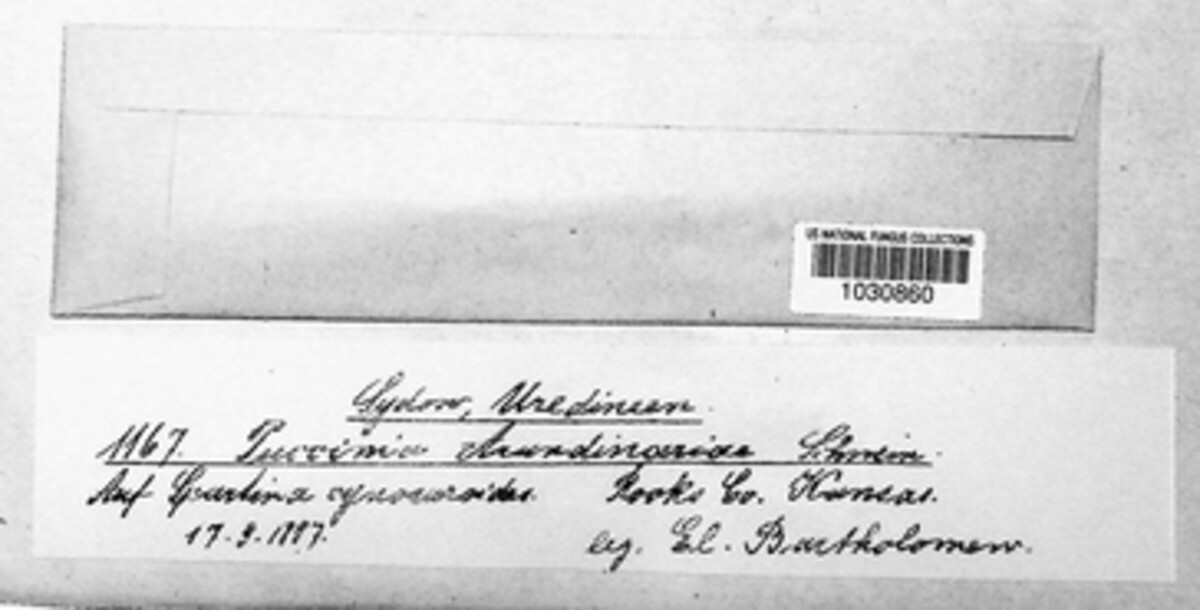 US NATIONAL FUNGUS COLLECTIONS
1030860
Sydow, Uredineen.
1167. Puccinia Arundinariae Schwein.
Auf Spartina cynosuroides. Rooks Co. Kansas.
17-9-1897.
leg. El. Bartholomew.